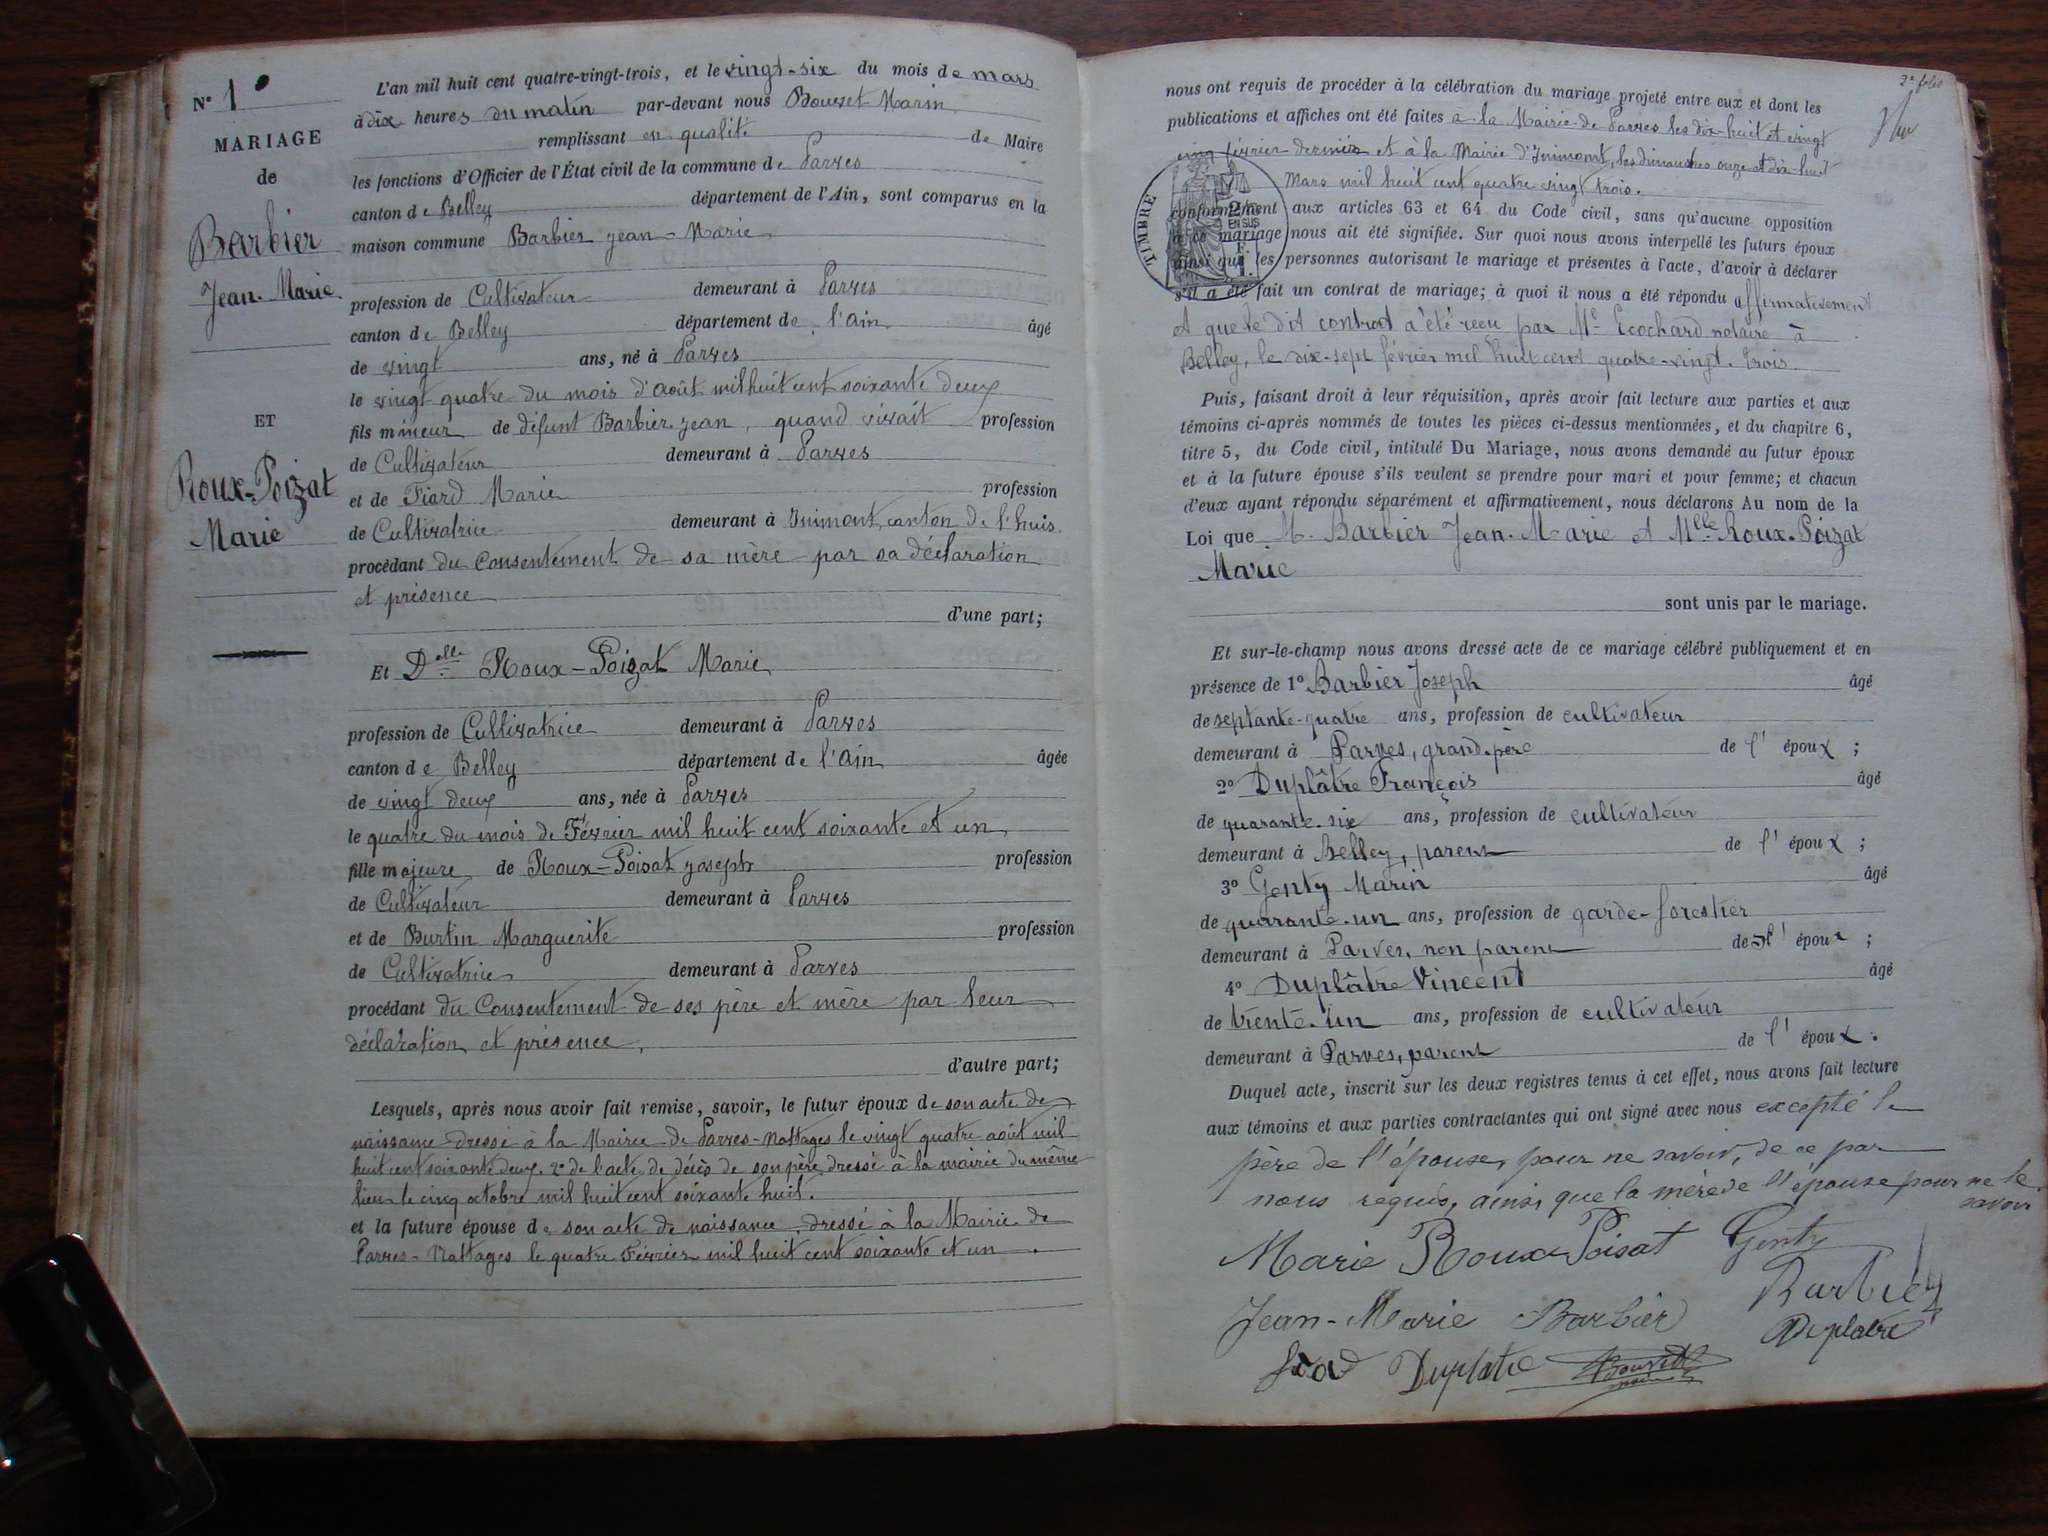 N° 1
MARIAGE
de
Barbier
Jean-Marie
ET
Roux-Poizat
Marie
L'an mil huit cent quatre-vingt-trois, et le vingt-six du mois de mars
à dix heures du matin par-devant nous Bouvet Marin
remplissant en qualité de Maire
les fonctions d'Officier de l'État civil de la commune de Parves
canton de Belley département de l'Ain, sont comparus en la
maison commune Barbier Jean-Marie
profession de Cultivateur demeurant à Parves
canton de Belley département de l'ain âgé
de vingt ans, né à Parves
le vingt quatre du mois d'août mil huit cent soixante deux
fils mineur de défunt Barbier Jean, quand vivait profession
de Cultivateur demeurant à Parves
et de Fiard Marie profession
de Cultivatrice demeurant à Inimont, canton de l'huis.
procédant du Consentement de sa mère par sa déclaration
et présence
d'une part;
Et Delle Roux-Poizat Marie
profession de Cultivatrice demeurant à Parves
canton de Belley département de l'ain âgée
de vingt deux ans, née à Parves
le quatre du mois de Février mil huit cent soixante et un
fille majeure de Roux-Poizat Joseph profession
de Cultivateur demeurant à Parves
et de Burtin Marguerite profession
de Cultivatrice demeurant à Parves
procédant du Consentement de ses père et mère par leur
déclaration et présence,
d'autre part;
Lesquels, après nous avoir fait remise, savoir, le futur époux de son acte de
naissance dressé à la Mairie de Parves-Nattages le vingt quatre août mil
huit cent soixante deux. 2° de l'acte de décès de son père, dressé à la mairie du même
lieu le cinq octobre mil huit cent soixante huit.
et la future épouse de son acte de naissance dressé à la Mairie de
Parves-Nattages le quatre Février mil huit cent soixante et un.
2e folio
nous ont requis de procéder à la célébration du mariage projeté entre eux et dont les
publications et affiches ont été faites à la Mairie de Parves les dix-huit et vingt
cinq février dernier et à la Mairie d'Inimont, les dimanches onze et dix-huit
Mars mil huit cent quatre vingt trois.
TIMBRE
EN SUS
conformément aux articles 63 et 64 du Code civil, sans qu'aucune opposition
à ce mariage nous ait été signifiée. Sur quoi nous avons interpellé les futurs époux
ainsi que les personnes autorisant le mariage et présentes à l'acte, d'avoir à déclarer
s'il a été fait un contrat de mariage; à quoi il nous a été répondu affirmativement
et que le dit contrat a été reçu par Me Ecochard notaire à
Belley, le dix-sept février mil huit cent quatre-vingt-trois.
Puis, faisant droit à leur réquisition, après avoir fait lecture aux parties et aux
témoins ci-après nommés de toutes les pièces ci-dessus mentionnées, et du chapitre 6,
titre 5, du Code civil, intitulé Du Mariage, nous avons demandé au futur époux
et à la future épouse s'ils veulent se prendre pour mari et pour femme; et chacun
d'eux ayant répondu séparément et affirmativement, nous déclarons Au nom de la
Loi que M. Barbier Jean-Marie et Mlle Roux-Poizat
Marie
sont unis par le mariage.
Et sur-le-champ nous avons dressé acte de ce mariage célébré publiquement et en
présence de 1° Barbier Joseph âgé
de septante-quatre ans, profession de cultivateur
demeurant à Parves, grand-père de l'époux;
2° Duplâtre François âgé
de quarante-six ans, profession de cultivateur
demeurant à Belley, parent de l'époux;
3° Genty Marin âgé
de quarante-un ans, profession de garde-forestier
demeurant à Parves, non parent de l'époux;
4° Duplâtre Vincent âgé
de trente-un ans, profession de cultivateur
demeurant à Parves, parent de l'époux.
Duquel acte, inscrit sur les deux registres tenus à cet effet, nous avons fait lecture
aux témoins et aux parties contractantes qui ont signé avec nous excepté le
père de l'épouse, pour ne savoir, de ce par
nous requis, ainsi que la mère de l'épouse pour ne le
savoir
Marie Roux Poisat Genty
Barbier
Jean-Marie Barbier Duplatre
Duplatre Bouvet